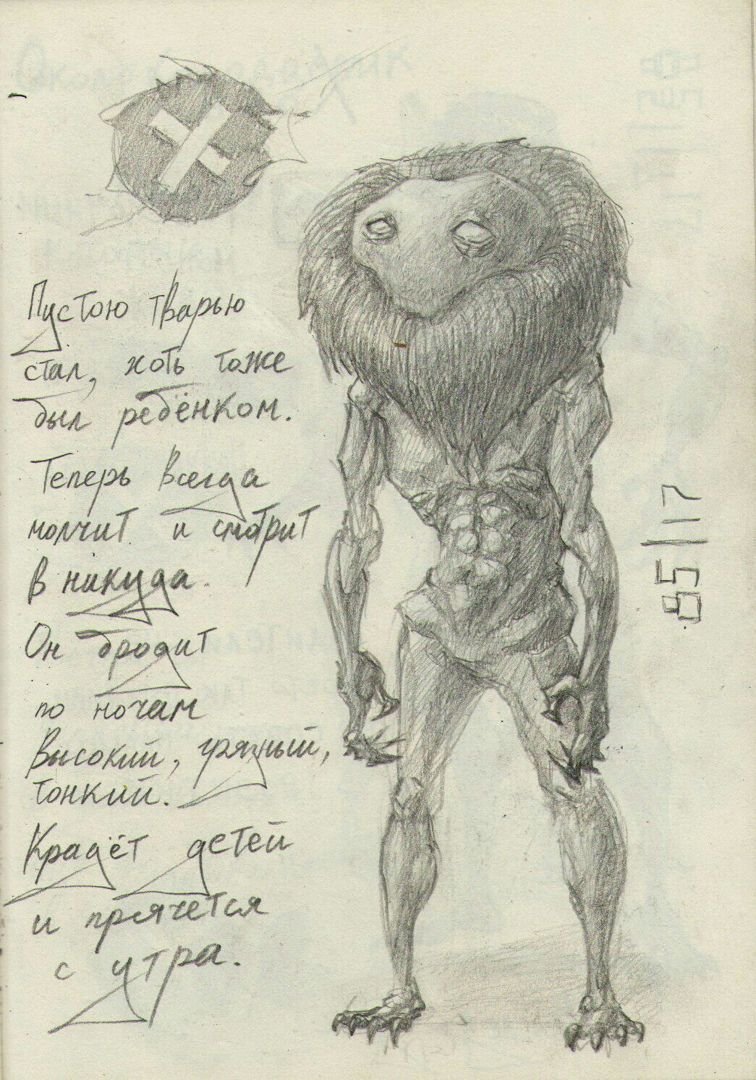 Пустою тварью
стал, хоть тоже
был ребёнком.
Теперь всегда
молчит и смотрит
в никуда.
Он бродит
по ночам
высокий, грязный,
тонкий.
Крадёт детей
и прячется
с утра.
85/17